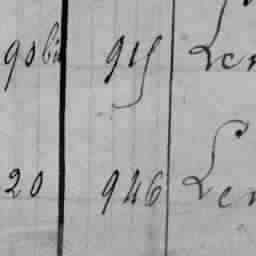 90bis 915 Ler
20 946 Ler